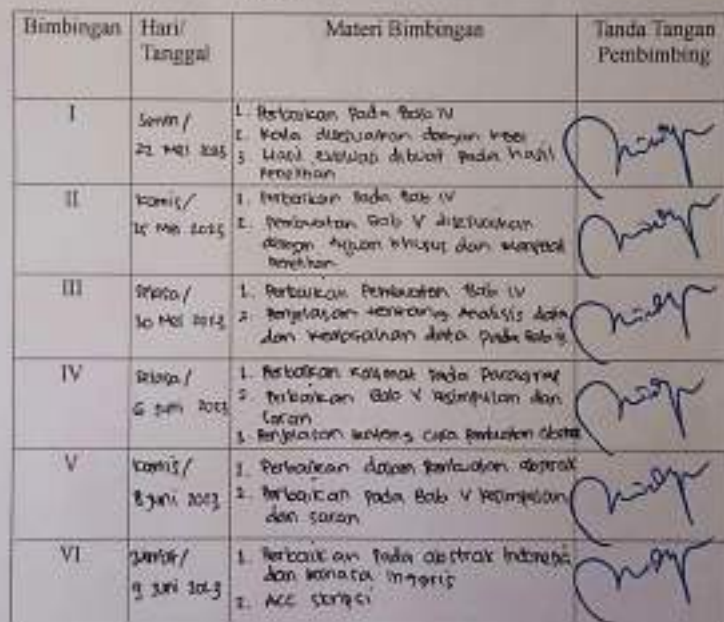 Bimbingan Hari/ Tanggal Materi Bimbingan Tanda Tangan Pembimbing
I
Senin /
22 Mei 2023
1. Perbaikan Pada Bab IV
2.
3. Hasil evaluasi dibuat pada hasil
Penelitian
II
Kamis /
25 Mei 2023
1. Perbaikan Pada Bab IV
2. Pembuatan Bab V disesuaikan
dengan tujuan khusus dan
Penelitian
III
Selasa /
30 Mei 2023
1. Perbaikan Pembuatan Bab IV
2. Penjelasan tentang Analisis data
dan keabsahan data pada Bab
IV
Selasa /
6 Juni 2023
1. Perbaikan Kalimat Pada Paragraf
2. Perbaikan Bab V kesimpulan dan
Saran
3. Penjelasan tentang cara Pembuatan abstrak
V
Kamis /
8 Juni 2023
1. Perbaikan dalam Pembuatan abstrak
2. Perbaikan pada Bab V kesimpulan
dan saran
VI
Jumat /
9 Juni 2023
1. Perbaikan Pada abstrak Indonesia
dan bahasa inggris
2. ACC skripsi